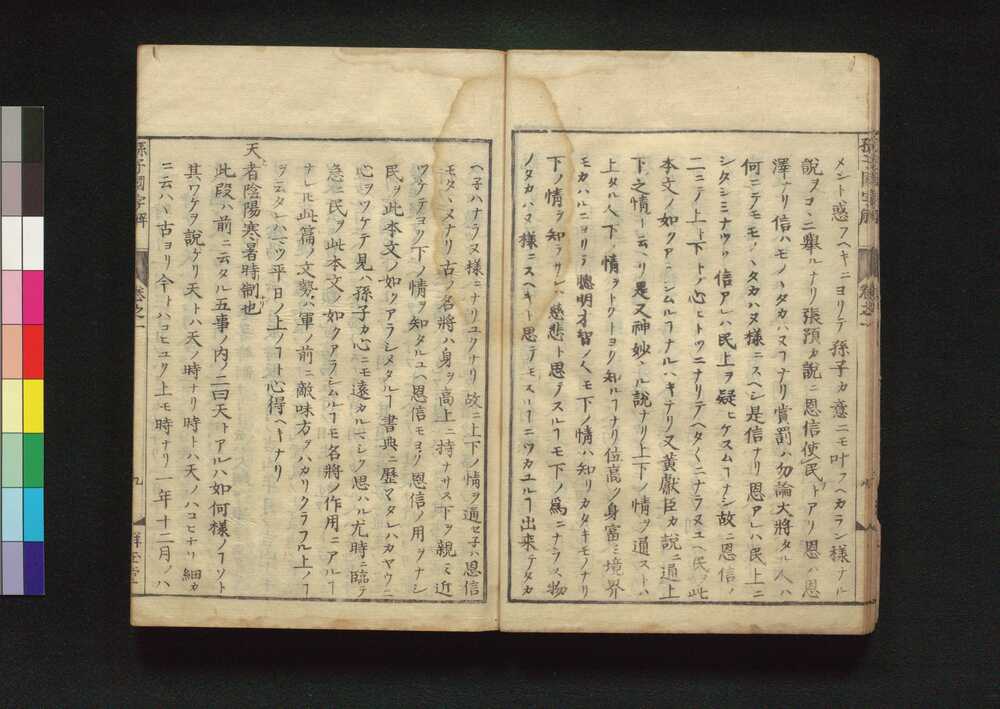 メント惑フヘキニヨリテ孫子カ意ニモ叶フヘカラン様ナル
說ヲコヽニ舉ルナリ張預カ說ニ恩信使民トアリ恩ハ恩
澤ナリ信ハモノヽタカハヌヿナリ賞罰ハ勿論大將タル人ハ
何ニテモモノヽタカハヌ樣ニスヘシ是信ナリ恩アレハ民上ニ
シタシミナツク信アレハ民上ヲ疑ヒケスムヿナシ故ニ恩信ノ
二ニテ上ト下トノ心ヒトツニナリテヘタヽクニナラヌユヘ民ヲ此
本文ノ如クアラシムルヿナルヘキナリ又黃獻臣カ說ニ通上
下之情ト云ヘリ是又神妙ナル說ナリ上下ノ情ヲ通ストハ
上タル人下ノ情ヲトクトヨリ知ルヿナリ位高ク身富ミ境界
モカハルニヨリテ聰明才智ノ人モ下ノ情ハ知リカタキモノナリ
下ノ情ヲ知ラサレハ慈悲ト思テスルヿモ下ノ爲ニナラス物
ノタカハヌ樣ニスヘキト思テモスルヿニツカユルヿ出來テタカ
ヘ子ハナラヌ樣ニナリユクナリ故ニ上下ノ情ヲ通セ子ハ恩信
モタヽヌナリ古ノ名將ハ身ヲ高上ニ持ナサス下ヲ親ミ近
ツケテヨク下ノ情ヲ知タルユヘ恩信モヨク恩信ノ用ヲナシ
民ヲ此本文ノ如クアラシメタルヿ書典ニ歷々タレハカヤウニ
心ヲツケテ見ハ孫子カ心ニモ遠カルマシク思ハル尤時ニ臨テ
急ニ民ヲ此本文ノ如クアラシムルヿモ名將ノ作用ニアルヿ
ナレ𪜈此篇ノ文勢ハ軍ノ前ニ敵味方ヲハカリクラフル上ノヿ
ヲ云タレハマツ平日ノ上ノヿト心得ヘキナリ
天者陰陽寒暑時制也
此段ハ前ニ云タル五事ノ内ノ二曰天トアルハ如何樣ノヿソト
其ワケヲ說ケリ天トハ天ノ時ナリ時トハ天ノハコヒナリ細カ
ニ云ハヽ古ヨリ今トハコヒユク上モ時ナリ一年十二月ノハ
孫子國字解
卷之一
九